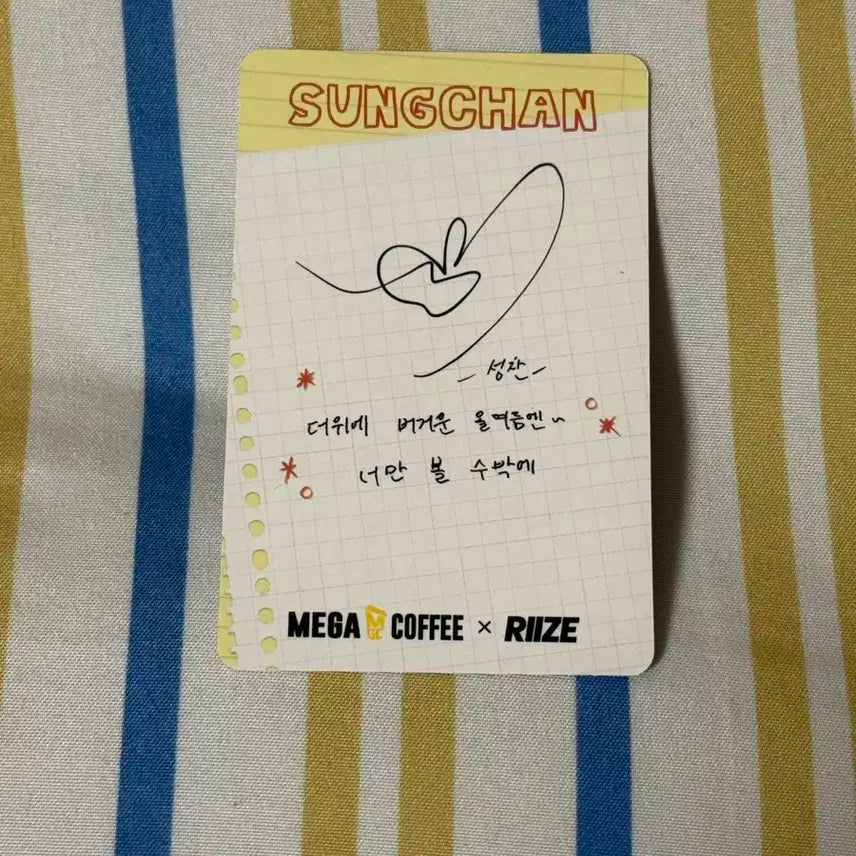 SUNGCHAN
- 성찬 -
더위에 버거운 올여름엔~
너만 볼 수밖에
MEGA MGC COFFEE × RIIZE